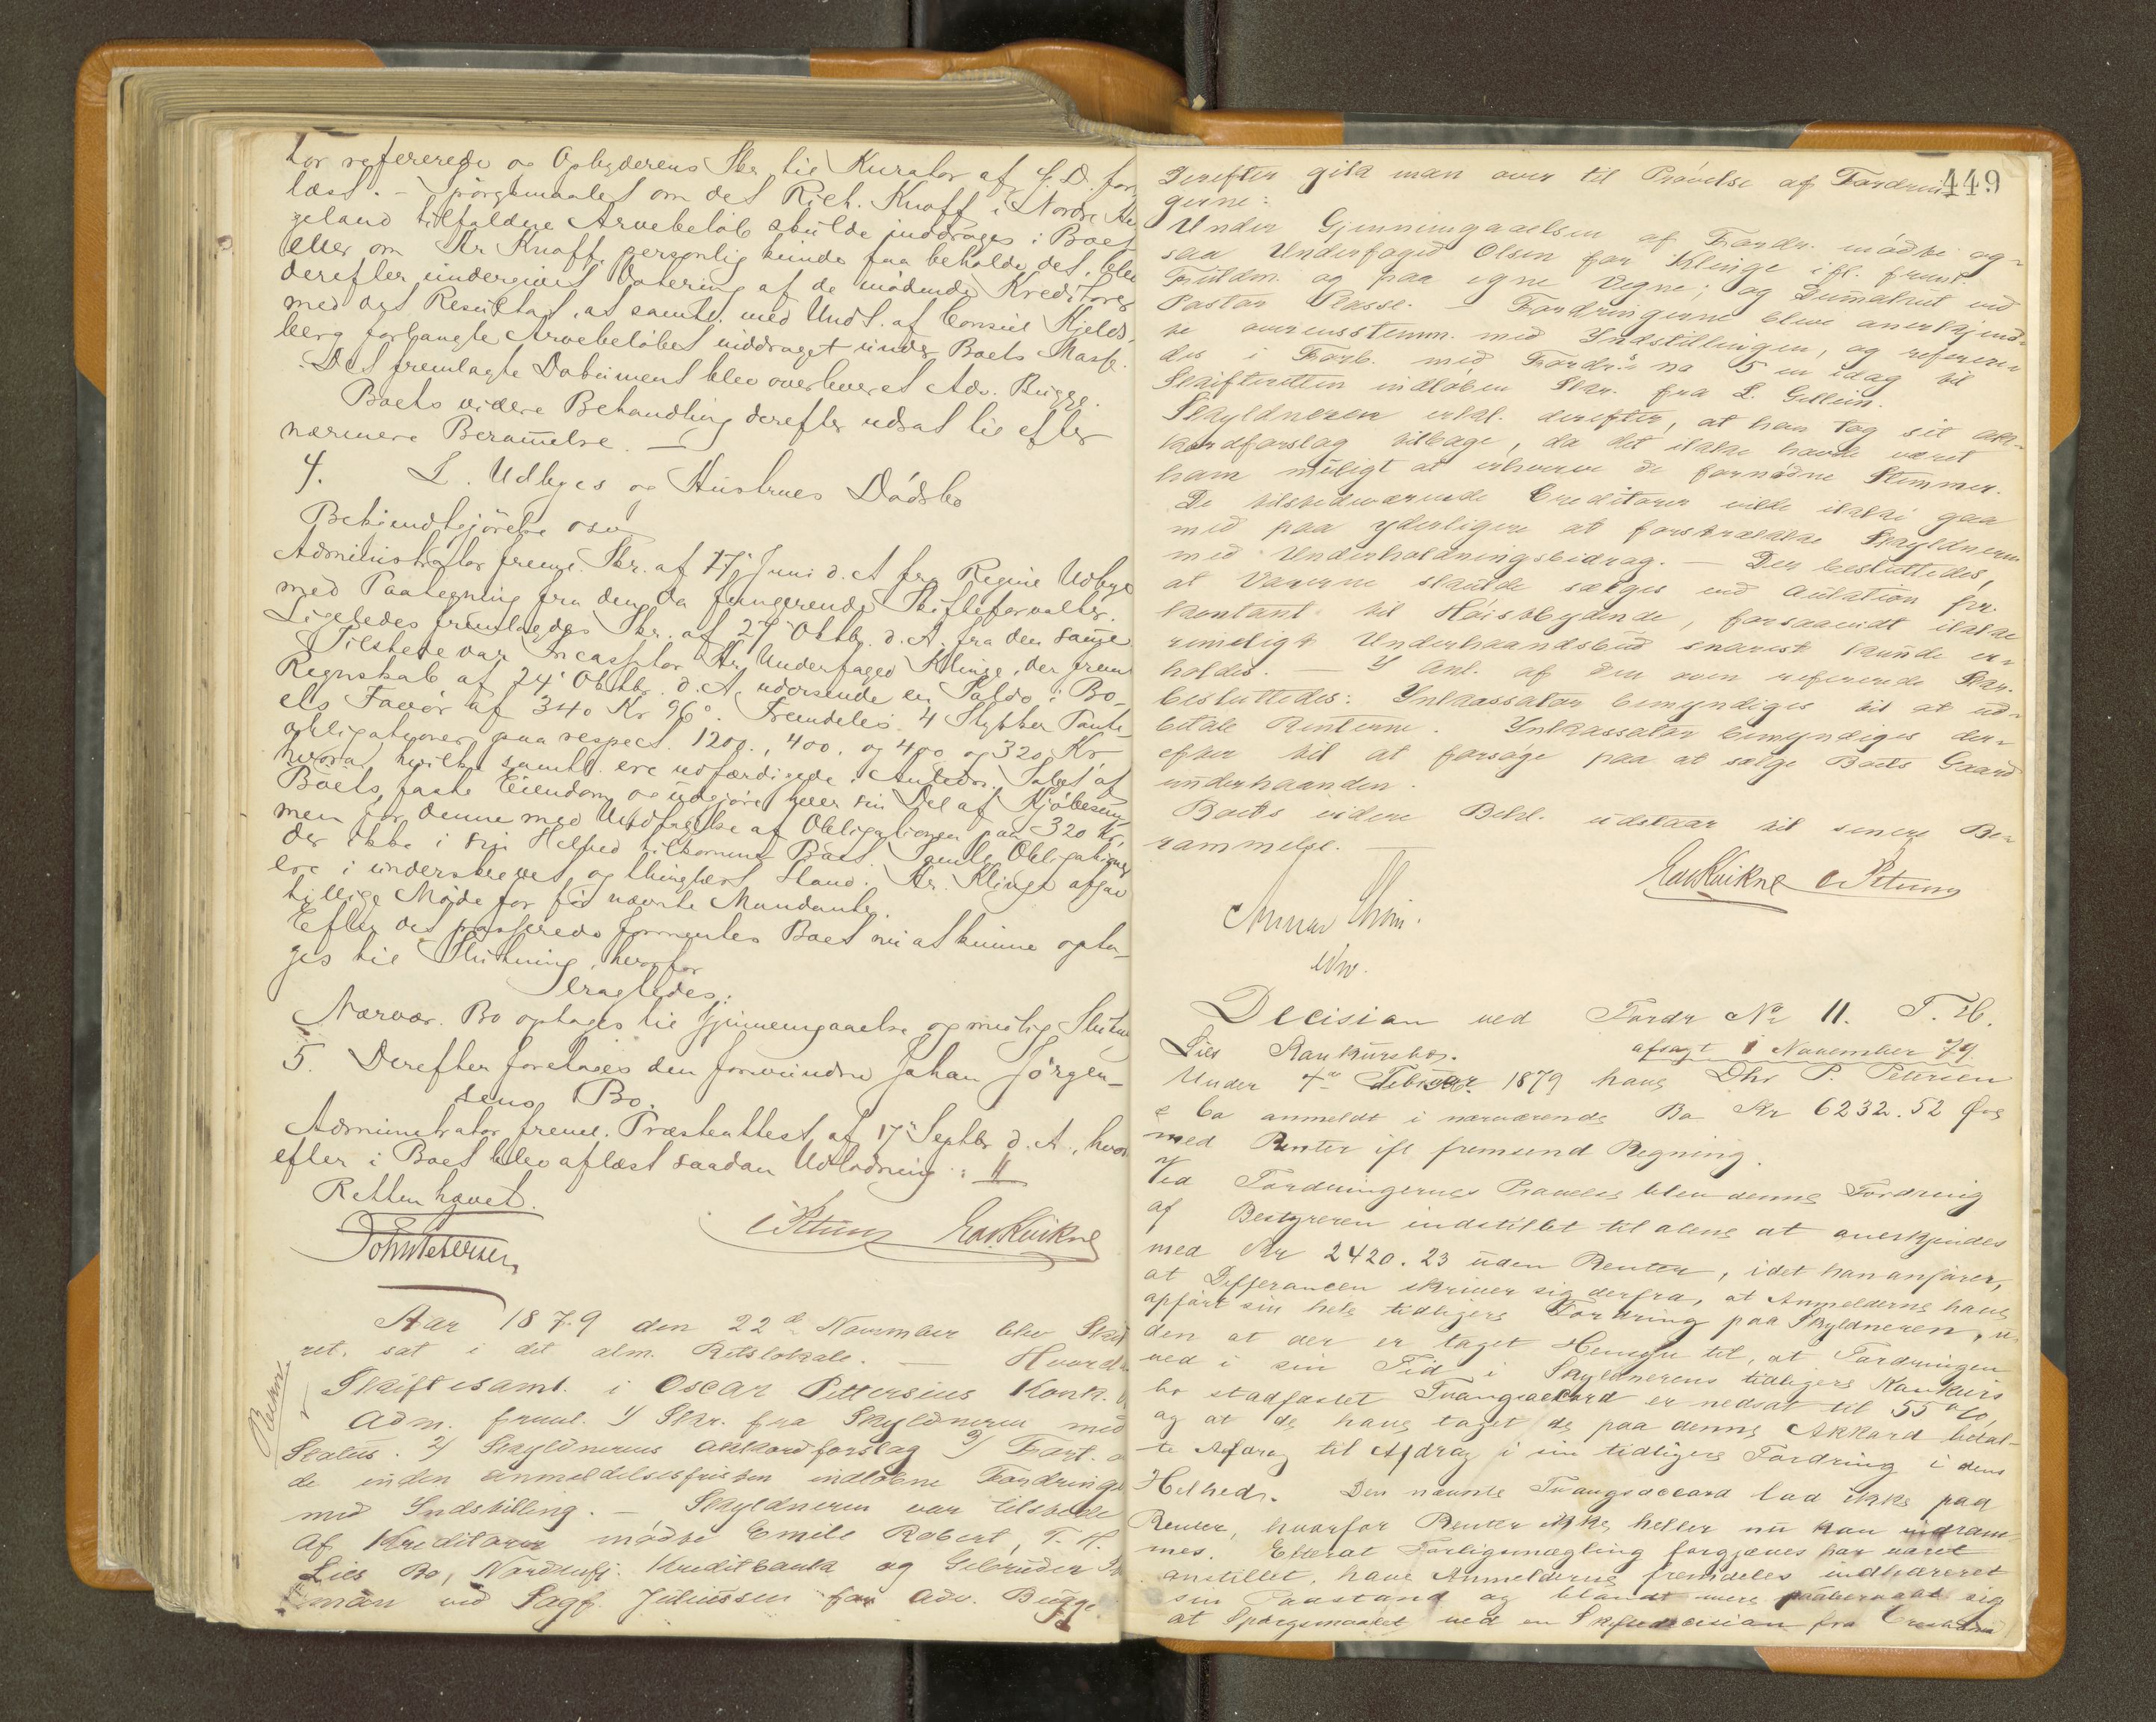 tor refererede og Opbyderens Skr. til Kurator af s. D. for-
læst. – Spörgsmaalet om det Rich. Knoff i Nordre He
geland tilfaldne Arvebelöb skulde inddrages i Boet
eller om Hr Knoff personlig kunde faa beholde det, blev
derefter undergivet Votering af de mödende Kreditorer
med det Resultat, at samtl. med Undt. af Consul Kjelds-
berg forlangte Arvebelöbet inddraget under Boets Masse.
Det fremlagte Dokument blev overleveret Adv. Bugge.
Boets videre Behandling derefter udsat til efter
nærmere Berammelse. –
4. L. Udbyes og Hustrues Dödsbo
Bekjendtgjörelse osv
Administrator freml. Skr. af 17 Juni d. A fra Regine Udbye
med Paategning fra den da fungerende Skifteforvalter.
Ligeledes fremlagdes Skr. af 27' Oktb. d. A. fra den samme
Tilstede var Incassator Hr. Underfoged Klinge, der freml
Regnskab af 24' Oktb. d. A. udvisende en Saldo i Bo-
ets Favör af 340 Kr 96º. Fremdeles 4 Stykker Pante-
obligationer paa respect. 1200., 400. og 400 og 320 Kr
hvoraf hvilke samtl. ere udfærdigede i Anledn. Salget af
Boets faste Eiendom og udgjöre hver sin Del af Kjöbesum
men for denne med Undtagelse af Obligationen paa 320 Kr,
der ikke i sin Helhed tilkommer Boet. Samtl. Obligationer
ere i underskrevet og thinglæst Stand. Hr. Klinge afgav
tillige Möde for för nævnte Mandanter.
Efter det passerede formentes Boet nu at kunne opta-
ges til Slutning, hvorfor
eragtedes:
Nærvær. Bo optages til Gjennemgaaelse og mulig Slutn
5. Derefter foretoges den formundne Johan Jörgen-
sens Bo.
Administrator freml. Præsteattest af 17' Septbr d. A., hvor
efter i Boet blev aflæst saadan Udlodning: "
Retten hævet.
John Petersen
Petersen Edv Kvikne
Aar 1879 den 22de November blev Skif
ret. sat i det alm. Retslokale. – Hvorda
Skiftesaml. i Oscar Pettersens Konk.
Adm. freml. 1/ Skr. fra Skyldneren med
Status. 2/ Skyldnerens Akkordforslag 3/ Fort. o
de inden anmeldelsesfristen indlöbne Fordringe
med Indstilling. – Skyldneren var tilstede
Af Kreditorer mödte Emile Robert, T. H.
Lies Bo, Nordenfj. Kreditbank og Gebrüder
man ved Sagf. Juliussen for Adv. Bugge
449
Derefter gik man over til Prövelse af Fordrin-
gerne:
Under Gjennemgaaelsen af Fordr. mödte og-
saa Underfoged Olsen for Klinge ifl. freml.
Fuldm. og paa egne Vegne; og
Pastor Passe. – Fordringerne bleve anerkjend-
te overensstemm. med Indstillingen, og referere-
des i Forb. med Fordr. no 5 en idag til
Skifteretten indlöben Skr. fra L. Gellein.
Skyldneren erkl. derefter, at han tog sit Ak-
kordforslag tilbage, da det ikke havde været
ham muligt at erhverve de fornödne Stemmer.
De tilstedeværende Creditorer vilde ikke gaa
med paa yderligere at forstrække Skyldneren
med Underholdningsbidrag. – Der besluttedes,
at Varerne skulde sælges ved Auktion pr.
kontant til Höistbydende, forsaavidt ikke
rimeligt Underhaandsbud snarest kunde er-
holdes. I Anl. af den oven refererede Skr.
besluttedes: Inkassator bemyndiges til at ud-
betale Renterne. Inkassator bemyndiges der-
efter til at forsöge paa at sælge Boets Gaard
underhaanden.
Boets videre Behl. udstaar til senere Be-
rammelse. –
Edv Kvikne Petersen
Decision ved Fordr No 11. T. H.
Lies Konkursbo. afsagt 1 November 79.
Under 4de Februar 1879 have Dhr P. Petersen
& Co anmeldt i nærværende Bo Kr 6232.52 Öre
med Renter ifl fremsend Regning.
Ved Fordringernes Prövelse blev denne Fordring
af Bestyreren indstillet til alene at anerkjendes
med Kr 2420.23 uden Renter, idet han anförer,
at Differancen skriver sig derfra, at Anmelderne have
opfört sin hele tidligere Fordring paa Skyldneren, u-
den at der er taget Hensyn til, at Fordringen
ved i sin Tid i Skyldnerens tidligere Konkurs
bo stadfæstet Tvangsaccord er nedsat til 55 %,
og at de have taget de paa denne Akkord betal-
te Afdrag til Afdrag i sin tidligere Fordring i dens
Helhed. Den nævnte Tvangsaccord lød ikke paa
Renter, hvorfor Renter ikke heller nu kan indröm-
mes. Efterat Forligsmægling forgjæves har været
anstillet, have Anmelderne fremdeles indhæreret
sin Paastand og blandt mere paaberaabt sig
at Spörgsmaalet ved en Skiftedecision fra